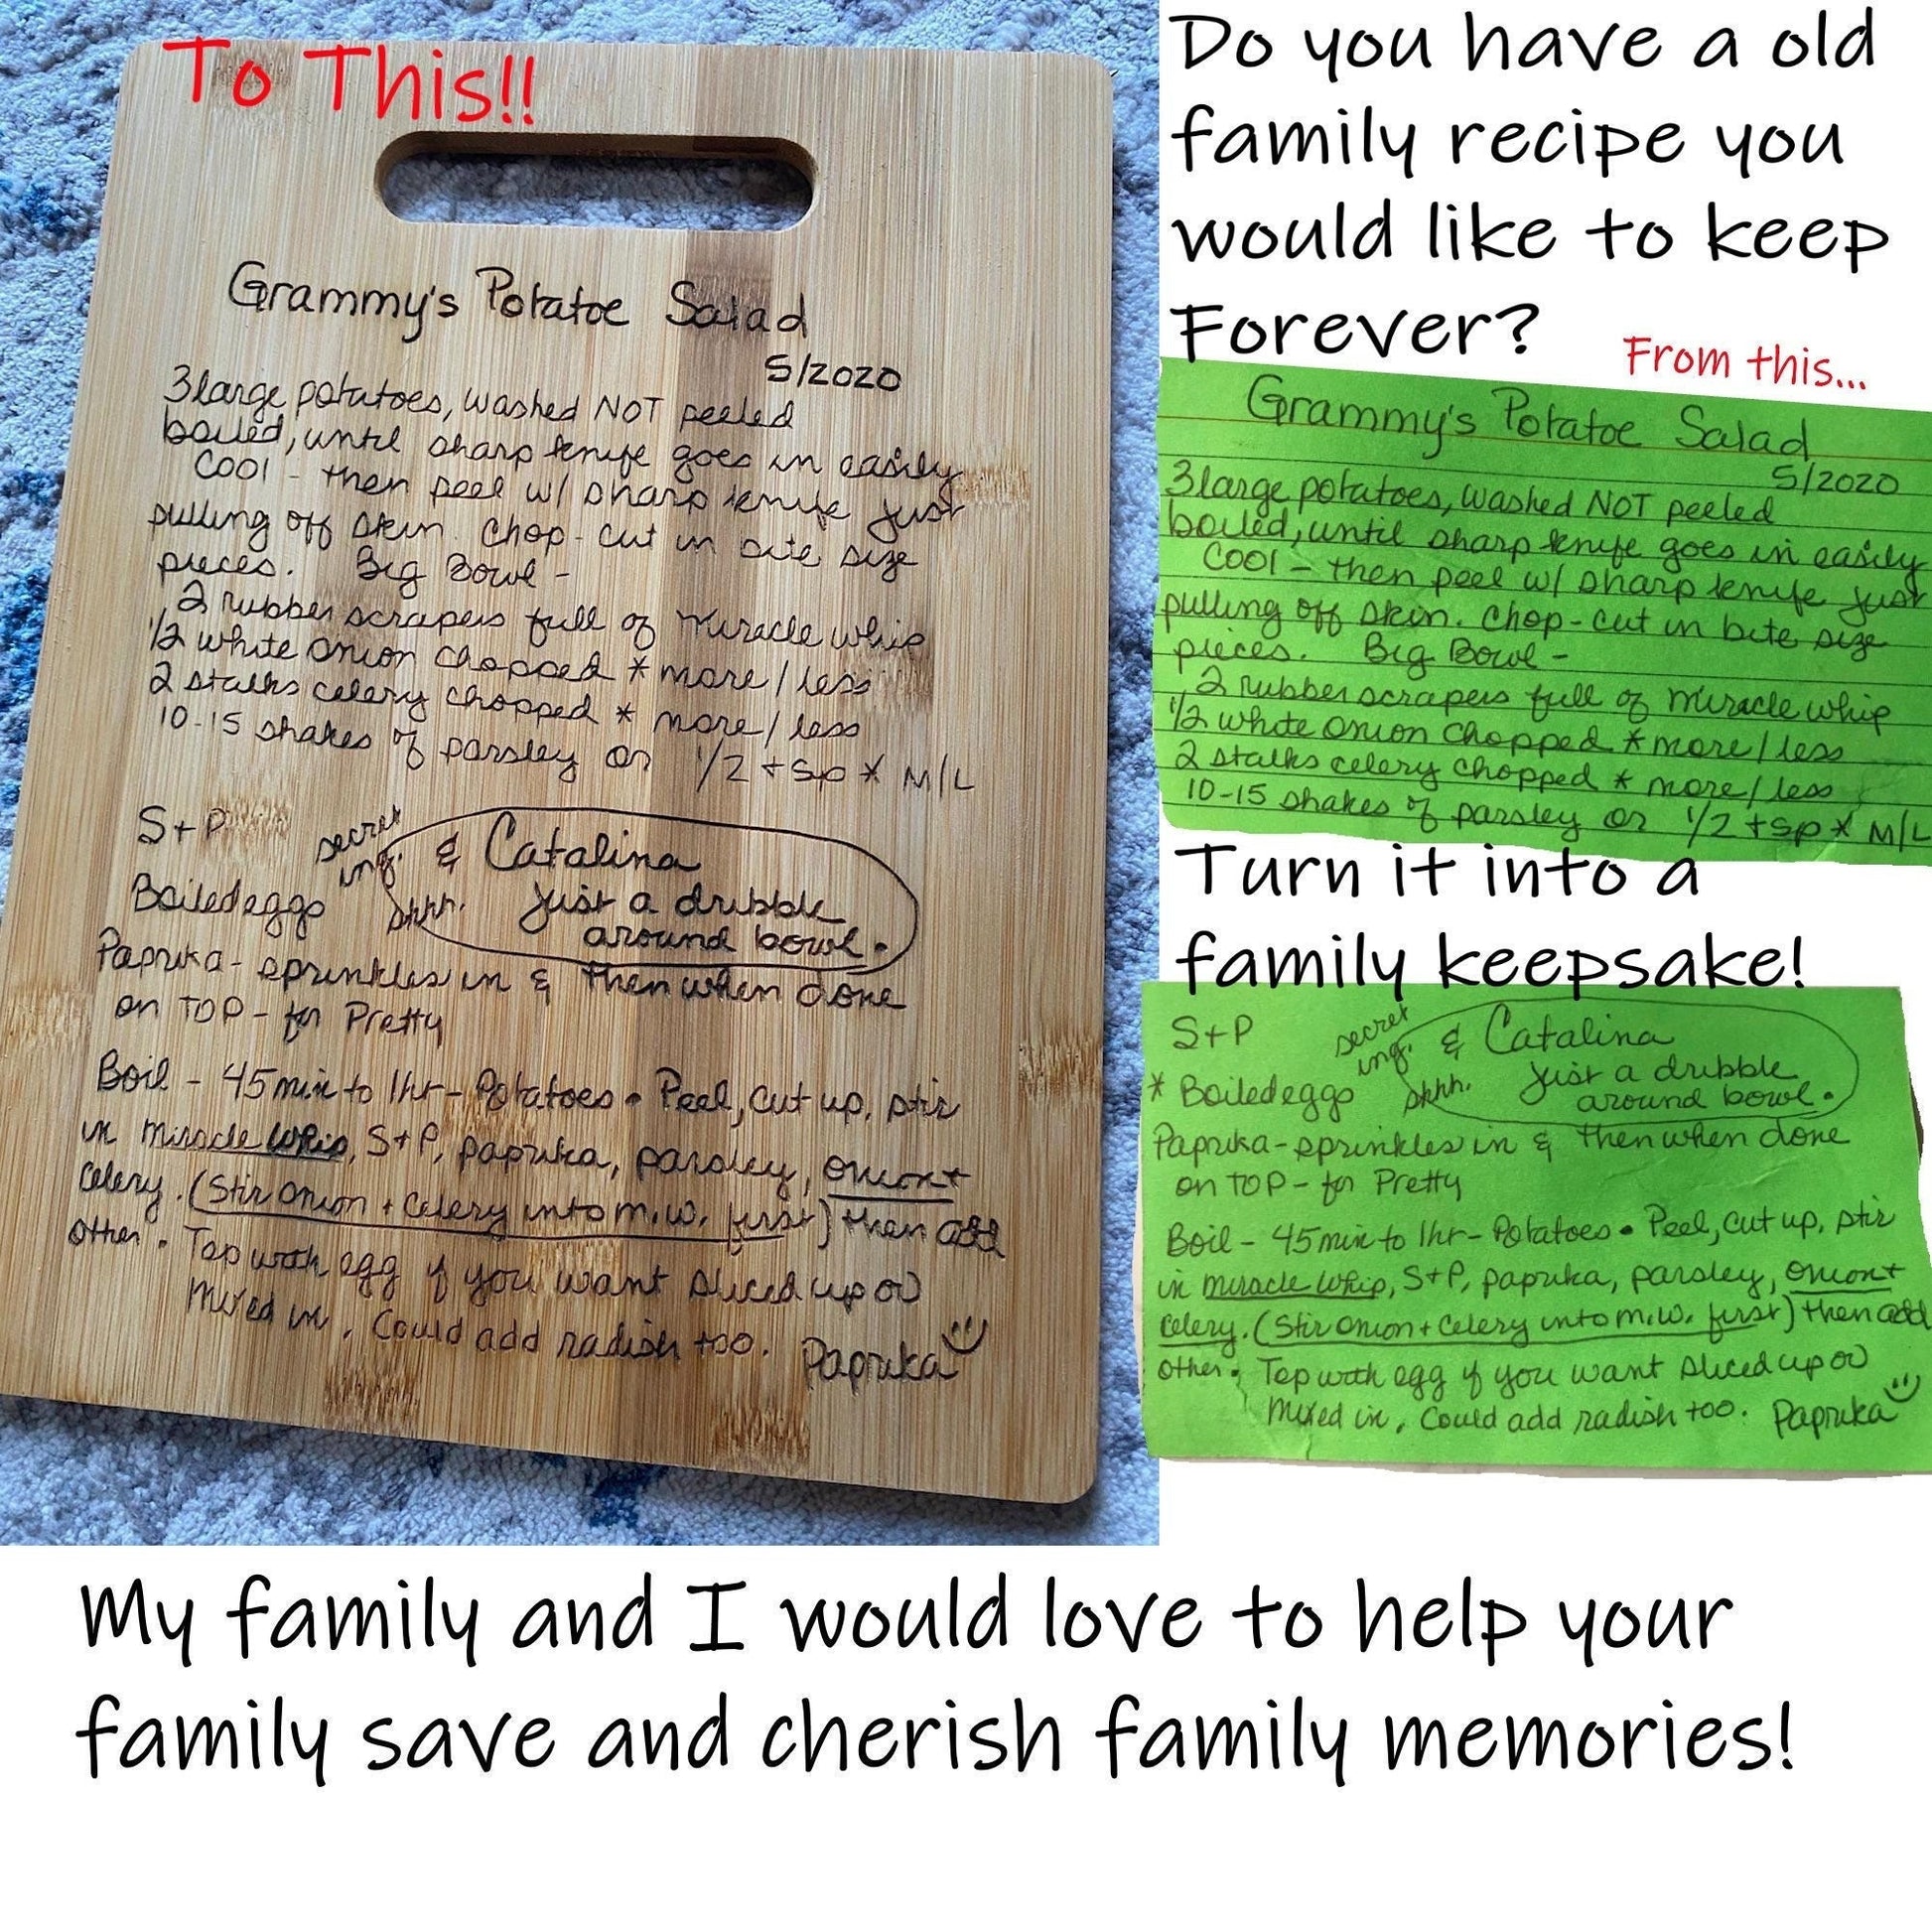 To This!!
Grammy's Potatoe Salad
5/2020
3 large potatoes, washed NOT peeled
boiled, until sharp knife goes in easily
Cool - then peel w/ sharp knife just
pulling off skin. Chop - cut in bite size
pieces. Big Bowl -
2 rubber scrapers full of Miracle whip
1/2 white onion chopped * more / less
2 stalks celery chopped * more / less
10-15 shakes of parsley or 1/2 tsp * M/L
S+P
secret
ing.
& Catalina
Boiled eggs
shhh.
Just a dribble
around bowl.
Paprika - sprinkles in & then when done
on TOP - for Pretty
Boil - 45 min to 1hr - Potatoes • Peel, cut up, stir
in Miracle Whip, S+P, paprika, parsley, onion +
celery. (Stir onion + celery into m.w. first) then add
other. Top with egg if you want sliced up or
Mixed in. Could add radish too. Paprika
Do you have a old
family recipe you
would like to keep
Forever?
From this...
Grammy's Potatoe Salad
5/2020
3 large potatoes, washed NOT peeled
boiled, until sharp knife goes in easily
Cool - then peel w/ sharp knife just
pulling off skin. Chop - cut in bite size
pieces. Big Bowl -
2 rubber scrapers full of Miracle whip
1/2 white onion chopped * more / less
2 stalks celery chopped * more / less
10-15 shakes of parsley or 1/2 tsp * M/L
Turn it into a
family keepsake!
S+P
secret
ing.
& Catalina
* Boiled eggs
shhh.
Just a dribble
around bowl.
Paprika - sprinkles in & then when done
on TOP - for Pretty
Boil - 45 min to 1hr - Potatoes • Peel, cut up, stir
in Miracle Whip, S+P, paprika, parsley, onion +
celery. (Stir onion + celery into m.w. first) then add
other. Top with egg if you want sliced up or
Mixed in. Could add radish too. Paprika
My family and I would love to help your
family save and cherish family memories!